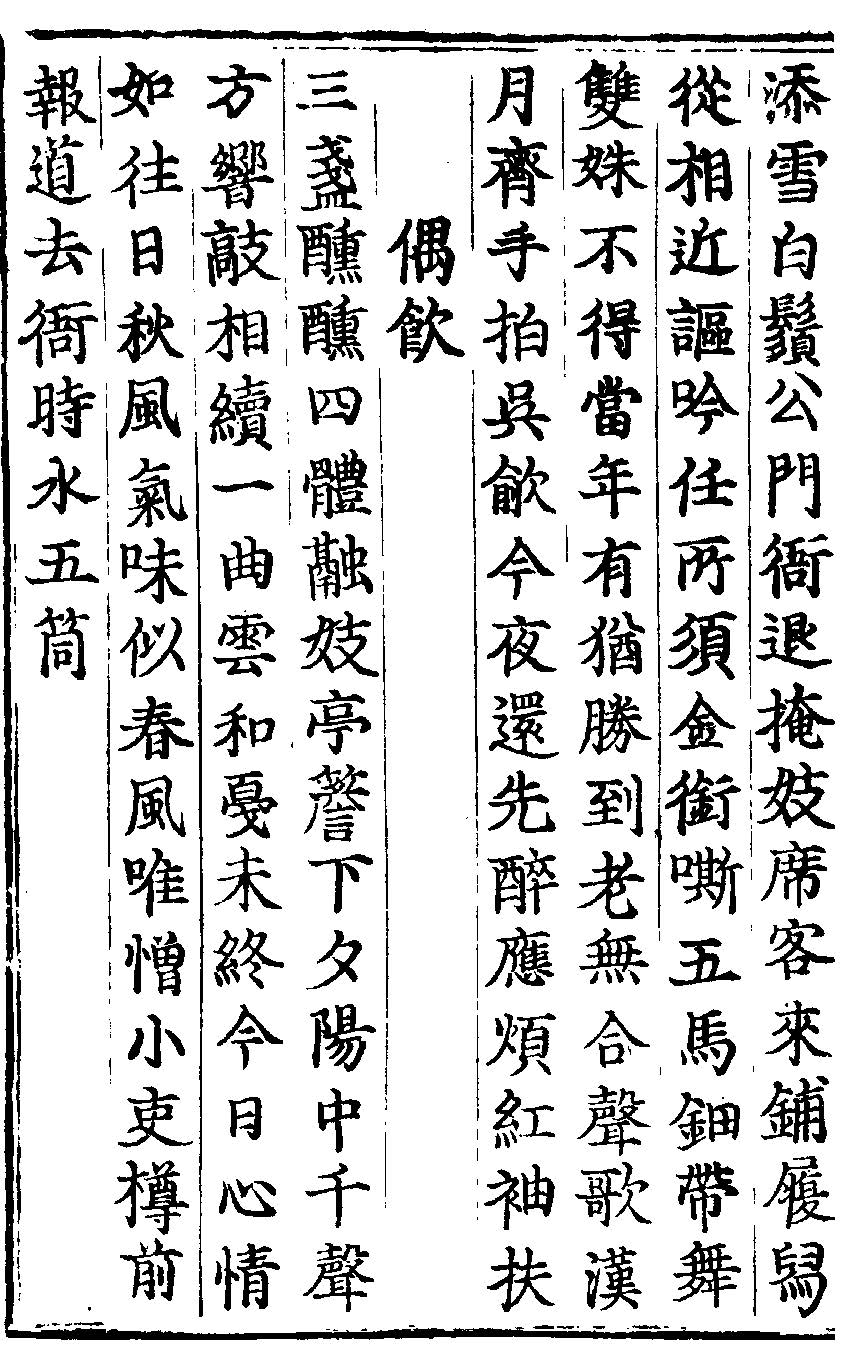 添雪白鬚公門衙退掩妓席客來鋪履舄
從相近謳吟任所須金銜嘶五馬鈿帶舞
雙姝不得當年有猶勝到老無合聲歌漢
月齊手拍吳歈今夜還先醉應煩紅袖扶
偶飲
三盞醺醺四體融妓亭簷下夕陽中千聲
方響敲相續一曲雲和戞未終今日心情
如往日秋風氣味似春風唯憎小吏樽前
報道去衙時水五筒